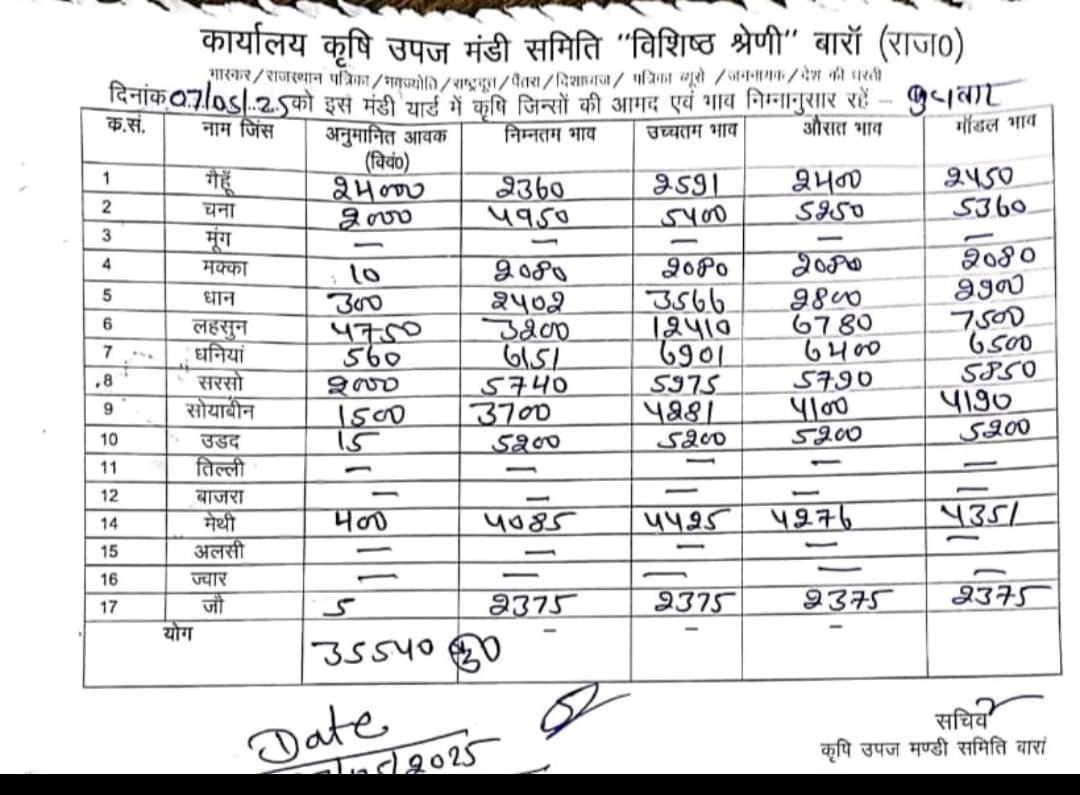 कार्यालय कृषि उपज मंडी समिति "विशिष्ठ श्रेणी" बारॉ (राज0)
भास्कर/राजस्थान पत्रिका/नवज्योति/राष्ट्रदूत/पैंतरा/दिशाध्वज/ पत्रिका ब्यूरो /जननायक/देश की धरती
दिनांक 07/05/.25 को इस मंडी यार्ड में कृषि जिन्सों की आगद एवं भाव निम्नानुसार रहें – बुधवार
क.सं. नाम जिंस अनुमानित आवक (क्विं0) निम्नतम भाव उच्चतम भाव औसत भाव मॉडल भाव
1 गेहूँ 24000 2360 2591 2400 2450
2 चना 2000 4950 5400 5250 5360
3 मूंग — — — — —
4 मक्का 10 2080 2080 2080 2080
5 धान 300 2402 3566 2800 2900
6 लहसुन 4750 3200 12410 6780 7500
7 धनियां 560 6151 6901 6400 6500
8 सरसो 2000 5740 5975 5790 5850
9 सोयाबीन 1500 3700 4281 4100 4190
10 उडद 15 5200 5200 5200 5200
11 तिल्ली — — — — —
12 बाजरा — — — — —
14 मेथी 400 4085 4425 4276 4351
15 अलसी — — — — —
16 ज्वार — — — — —
17 जौ 5 2375 2375 2375 2375
योग 35540 – – –
Date
/05/2025
सचिव
कृषि उपज मण्डी समिति बारां